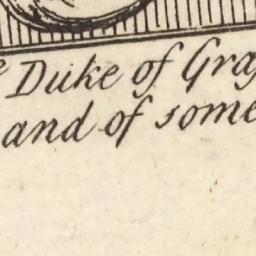 Duke of Gra
and of some